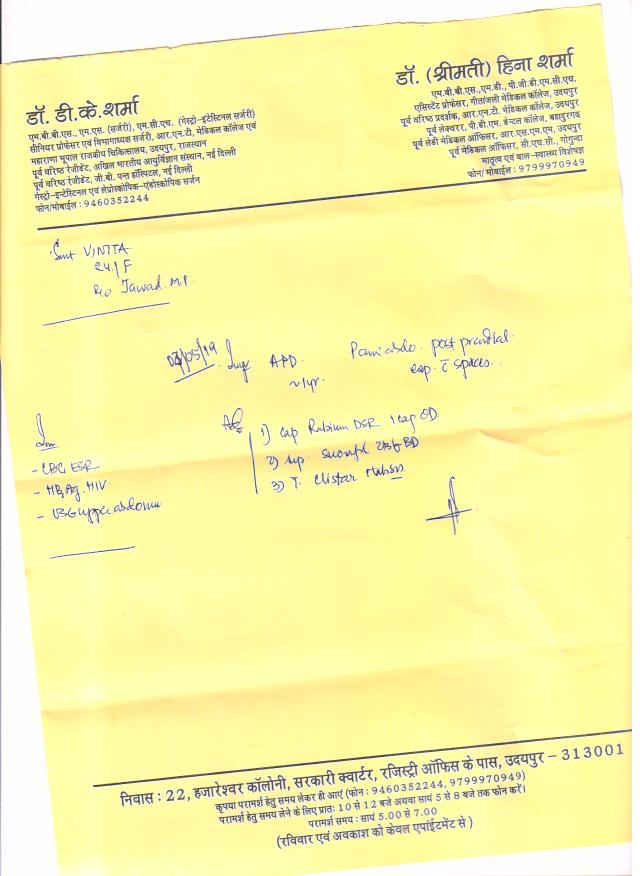 डॉ. डी.के.शर्मा
एम.बी.बी.एस., एम.एस. (सर्जरी), एम.सी.एच. (गेस्ट्रो-इंटेस्टिनल सर्जरी)
सीनियर प्रोफेसर एवं विभागाध्यक्ष सर्जरी, आर.एन.टी. मेडिकल कॉलेज एवं
महाराणा भूपाल राजकीय चिकित्सालय, उदयपुर, राजस्थान
पूर्व वरिष्ठ रेजीडेंट, अखिल भारतीय आयुर्विज्ञान संस्थान, नई दिल्ली
पूर्व वरिष्ठ रेजीडेंट, जी.बी. पन्त हॉस्पिटल, नई दिल्ली
गेस्ट्रो-इन्टेस्टिनल एवं लेप्रोस्कोपिक-एंडोस्कोपिक सर्जन
फोन/मोबाईल : 9460352244
डॉ. (श्रीमती) हिना शर्मा
एम.बी.बी.एस.,एम.डी., पी.जी.डी.एम.सी.एच.
एसिस्टेंट प्रोफेसर, गीतांजली मेडिकल कॉलेज, उदयपुर
पूर्व वरिष्ठ प्रदर्शक, आर.एन.टी. मेडिकल कॉलेज, उदयपुर
पूर्व लेक्चरर, पी.डी.एम. डेन्टल कॉलेज, बहादुरगढ़
पूर्व लेडी मेडिकल ऑफिसर, आर.एस.एम.एम, उदयपुर
पूर्व मेडिकल ऑफिसर, सी.एच.सी., गोगुन्दा
मातृत्व एवं बाल-स्वास्थ्य विशेषज्ञ
फोन/ मोबाईल : 9799970949
Smt VINITA
24/F
R/o Jawad M.P.
/05/19 APD
Pain post prandial
esp. c spaces.
~1yr.
- CBC ESR
- HBsAg. HIV
- USG upper abdomen
1) cap Rabium DSR 1 cap OD
2) BD
3) T.
निवास : 22, हजारेश्वर कॉलोनी, सरकारी क्वार्टर, रजिस्ट्री ऑफिस के पास, उदयपुर - 313001
कृपया परामर्श हेतु समय लेकर ही आएं (फोन : 9460352244, 9799970949)
परामर्श हेतु समय लेने के लिए प्रातः 10 से 12 बजे अथवा सायं 5 से 8 बजे तक फोन करें।
परामर्श समय : सायं 5.00 से 7.00
(रविवार एवं अवकाश को केवल एपांईटमेंट से )